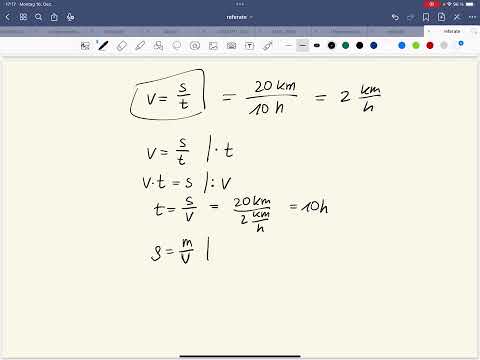 17:17 Montag 16. Dez.
96 %
referate
referate
v = s/t = 20 km/10 h = 2 km/h
v = s/t | · t
v·t = s | : v
t = s/v = 20 km/2 km/h = 10 h
ρ = m/V |